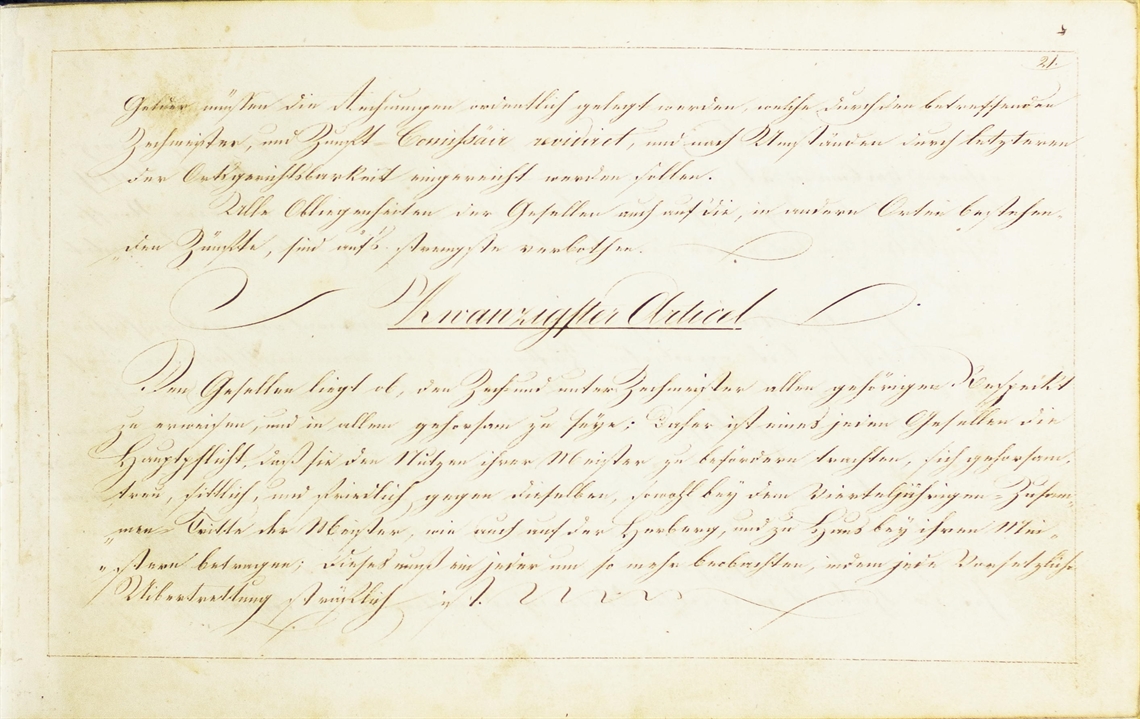 21.
Gelder müssen die Rechnungen ordentlich gelegt werden, welche durch den betreffenden
Zechmeister, und Zunft-Comissair revidiret, und nach Umständen durch letzteren
der Ortsgerichtsbarkeit eingereicht werden sollen.
Alle Obliegenheiten der Gesellen auch auf die, in andern Orten bestehen-
„den Zünfte, sind auf's strengste verbothen.
Zwanzigster Articel
Den Gesellen liegt ob, den Zech und unter Zechmeister allen gehörigen Respeckt
zu erweisen, und in allem gehorsam zu seye; Daher ist eines jeden Gesellen die
Hauptpflicht, daß sie den Nutzen ihrer Meister zu befördern trachten, sich gehorsam,
treu, sittlich, und friedlich gegen dieselben, sowohl bey dem Vierteljährigen-Zusam-
„men Tritte der Meister, wie auch auf der Herberg, und zu Haus bey ihren Mei-
„stern betragen; dieses muß ein jeder um so mehr beobachten, indem jede Vorsetzliche
Uibertrettung sträflich ist.